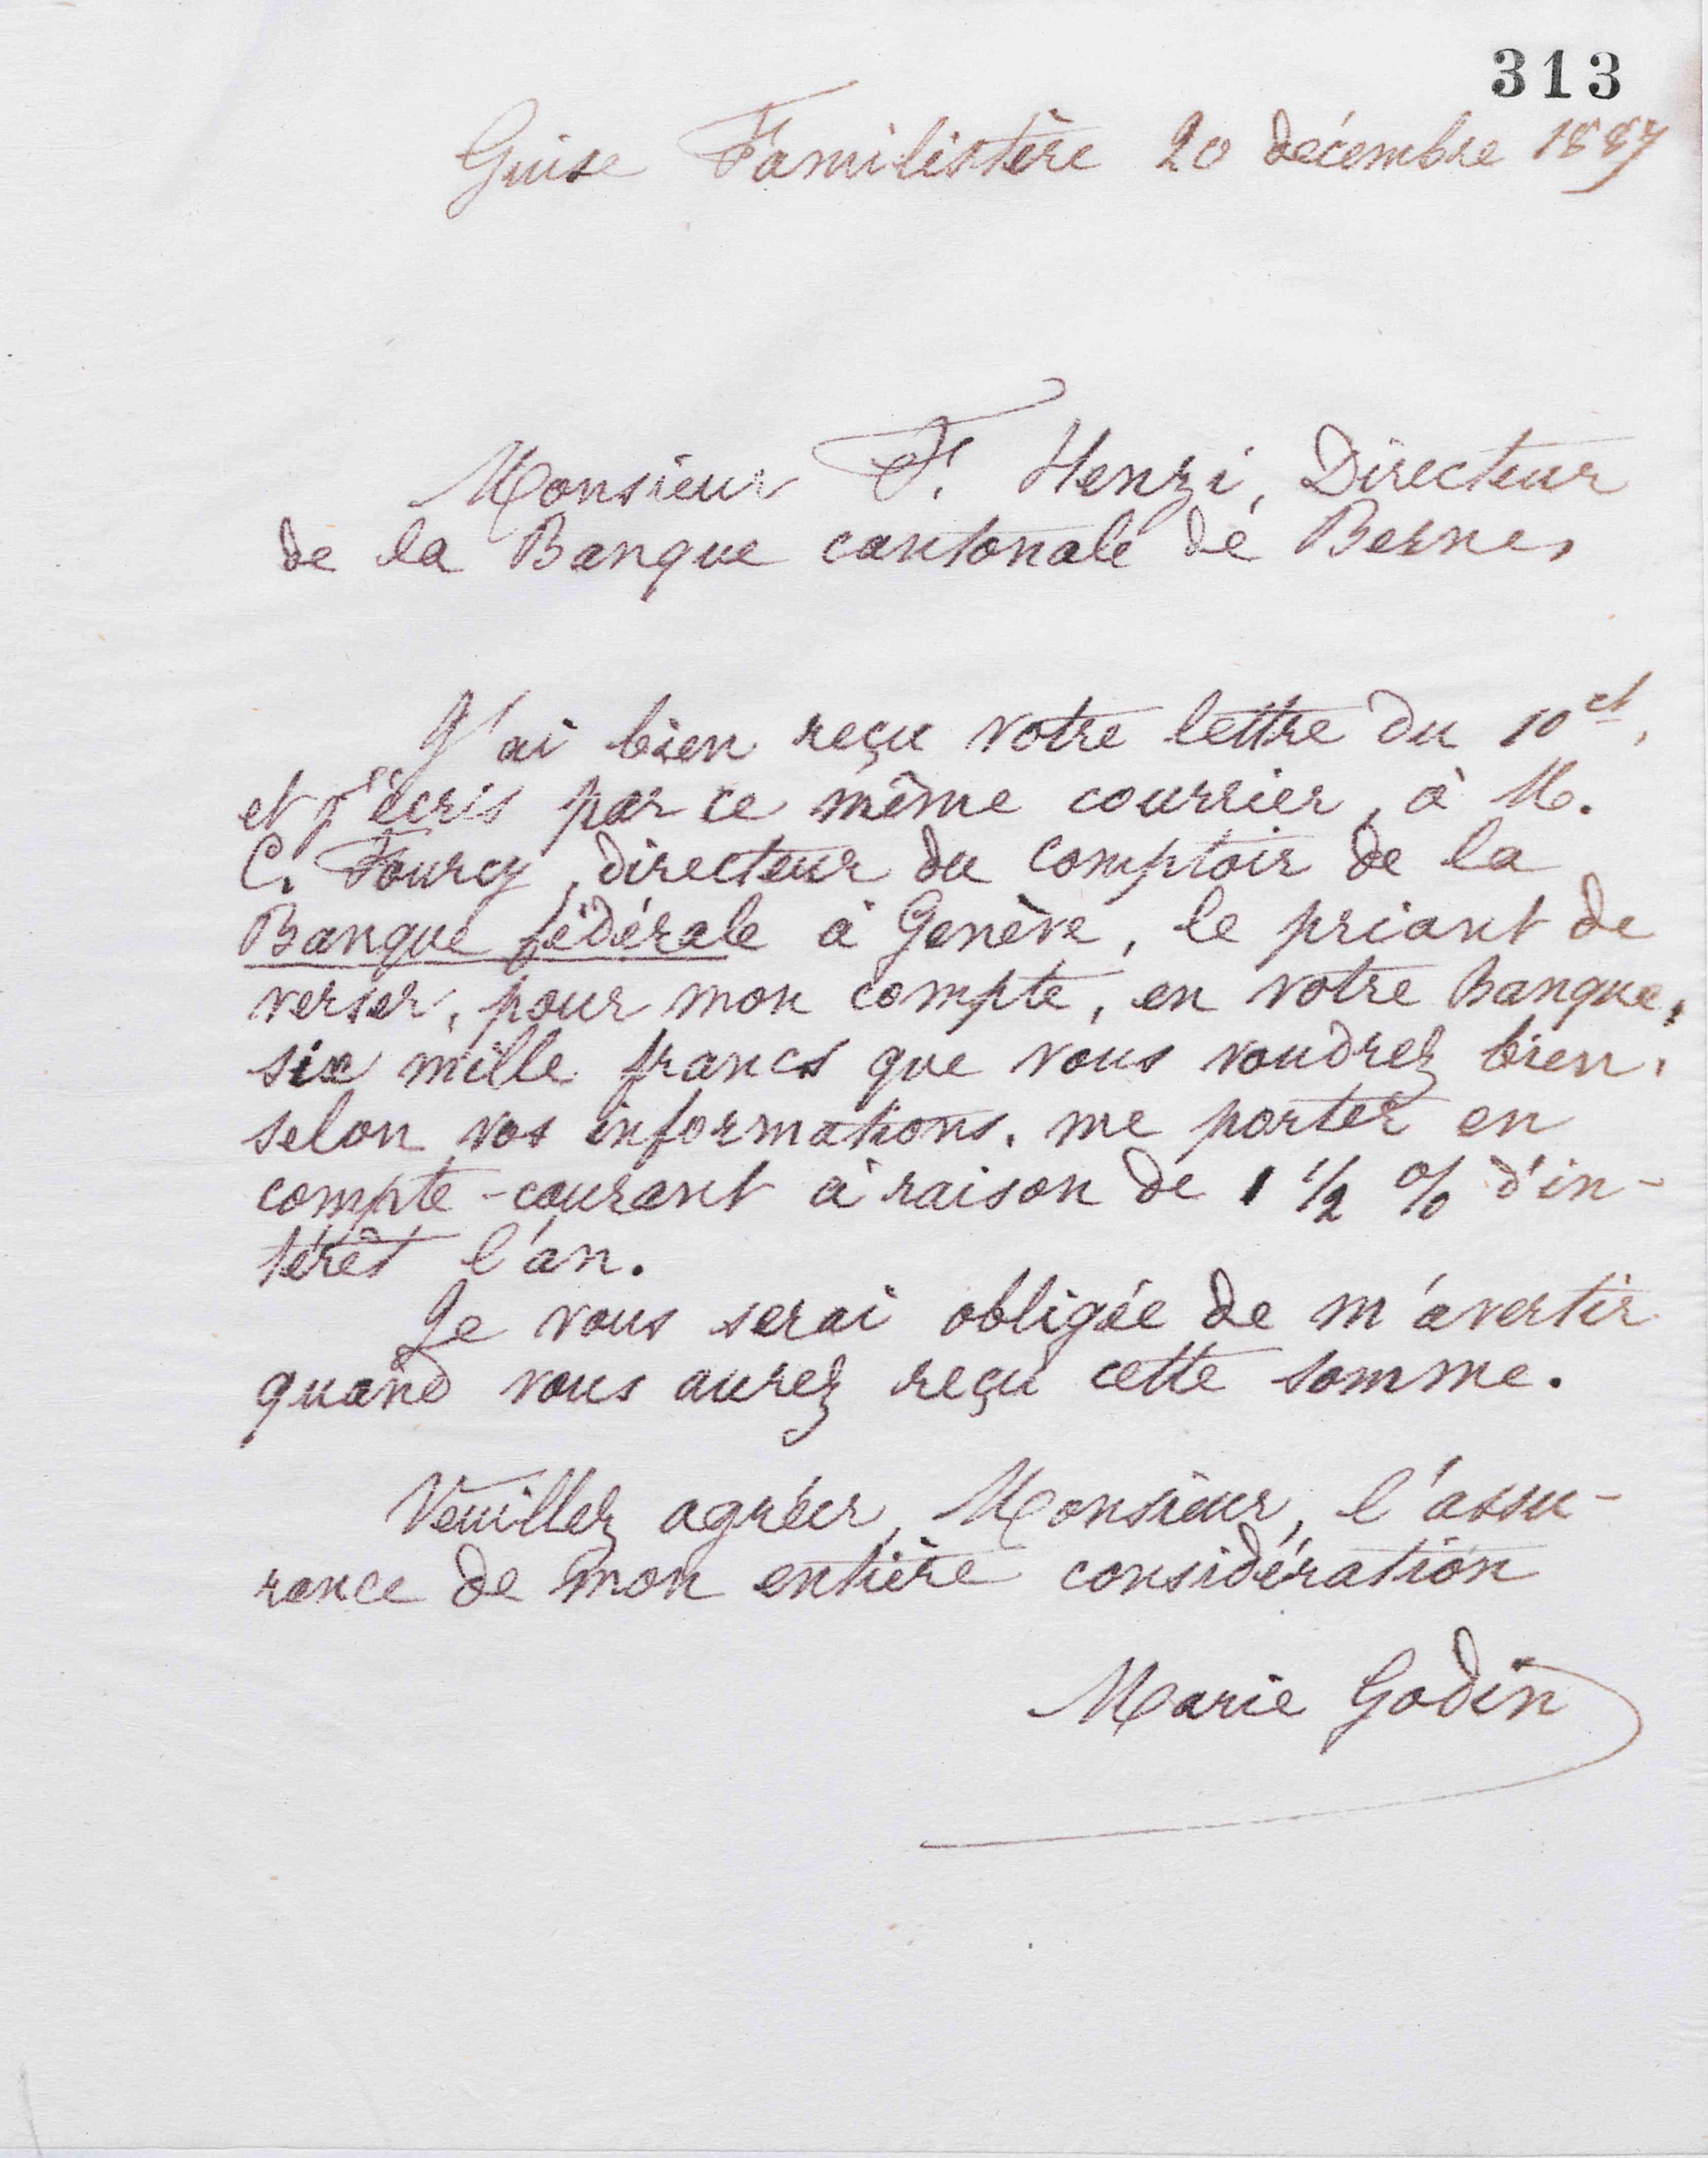 313
Guise Familistère 20 décembre 1887
Monsieur F. Henzi, Directeur
de la Banque cantonale de Berne,
J'ai bien reçu votre lettre du 10 ct,
et j'écris par ce même courrier, à M.
C. Fourcy, directeur du Comptoir de la
Banque fédérale à Genève, le priant de
verser, pour mon compte, en votre Banque,
six mille francs que vous voudrez bien,
selon vos informations, me porter en
compte-courant à raison de 1 1/2 % d'in-
térêt l'an.
Je vous serai obligée de m'avertir
quand vous aurez reçu cette somme.
Veuillez agréer, Monsieur, l'assu-
rance de mon entière considération
Marie Godin